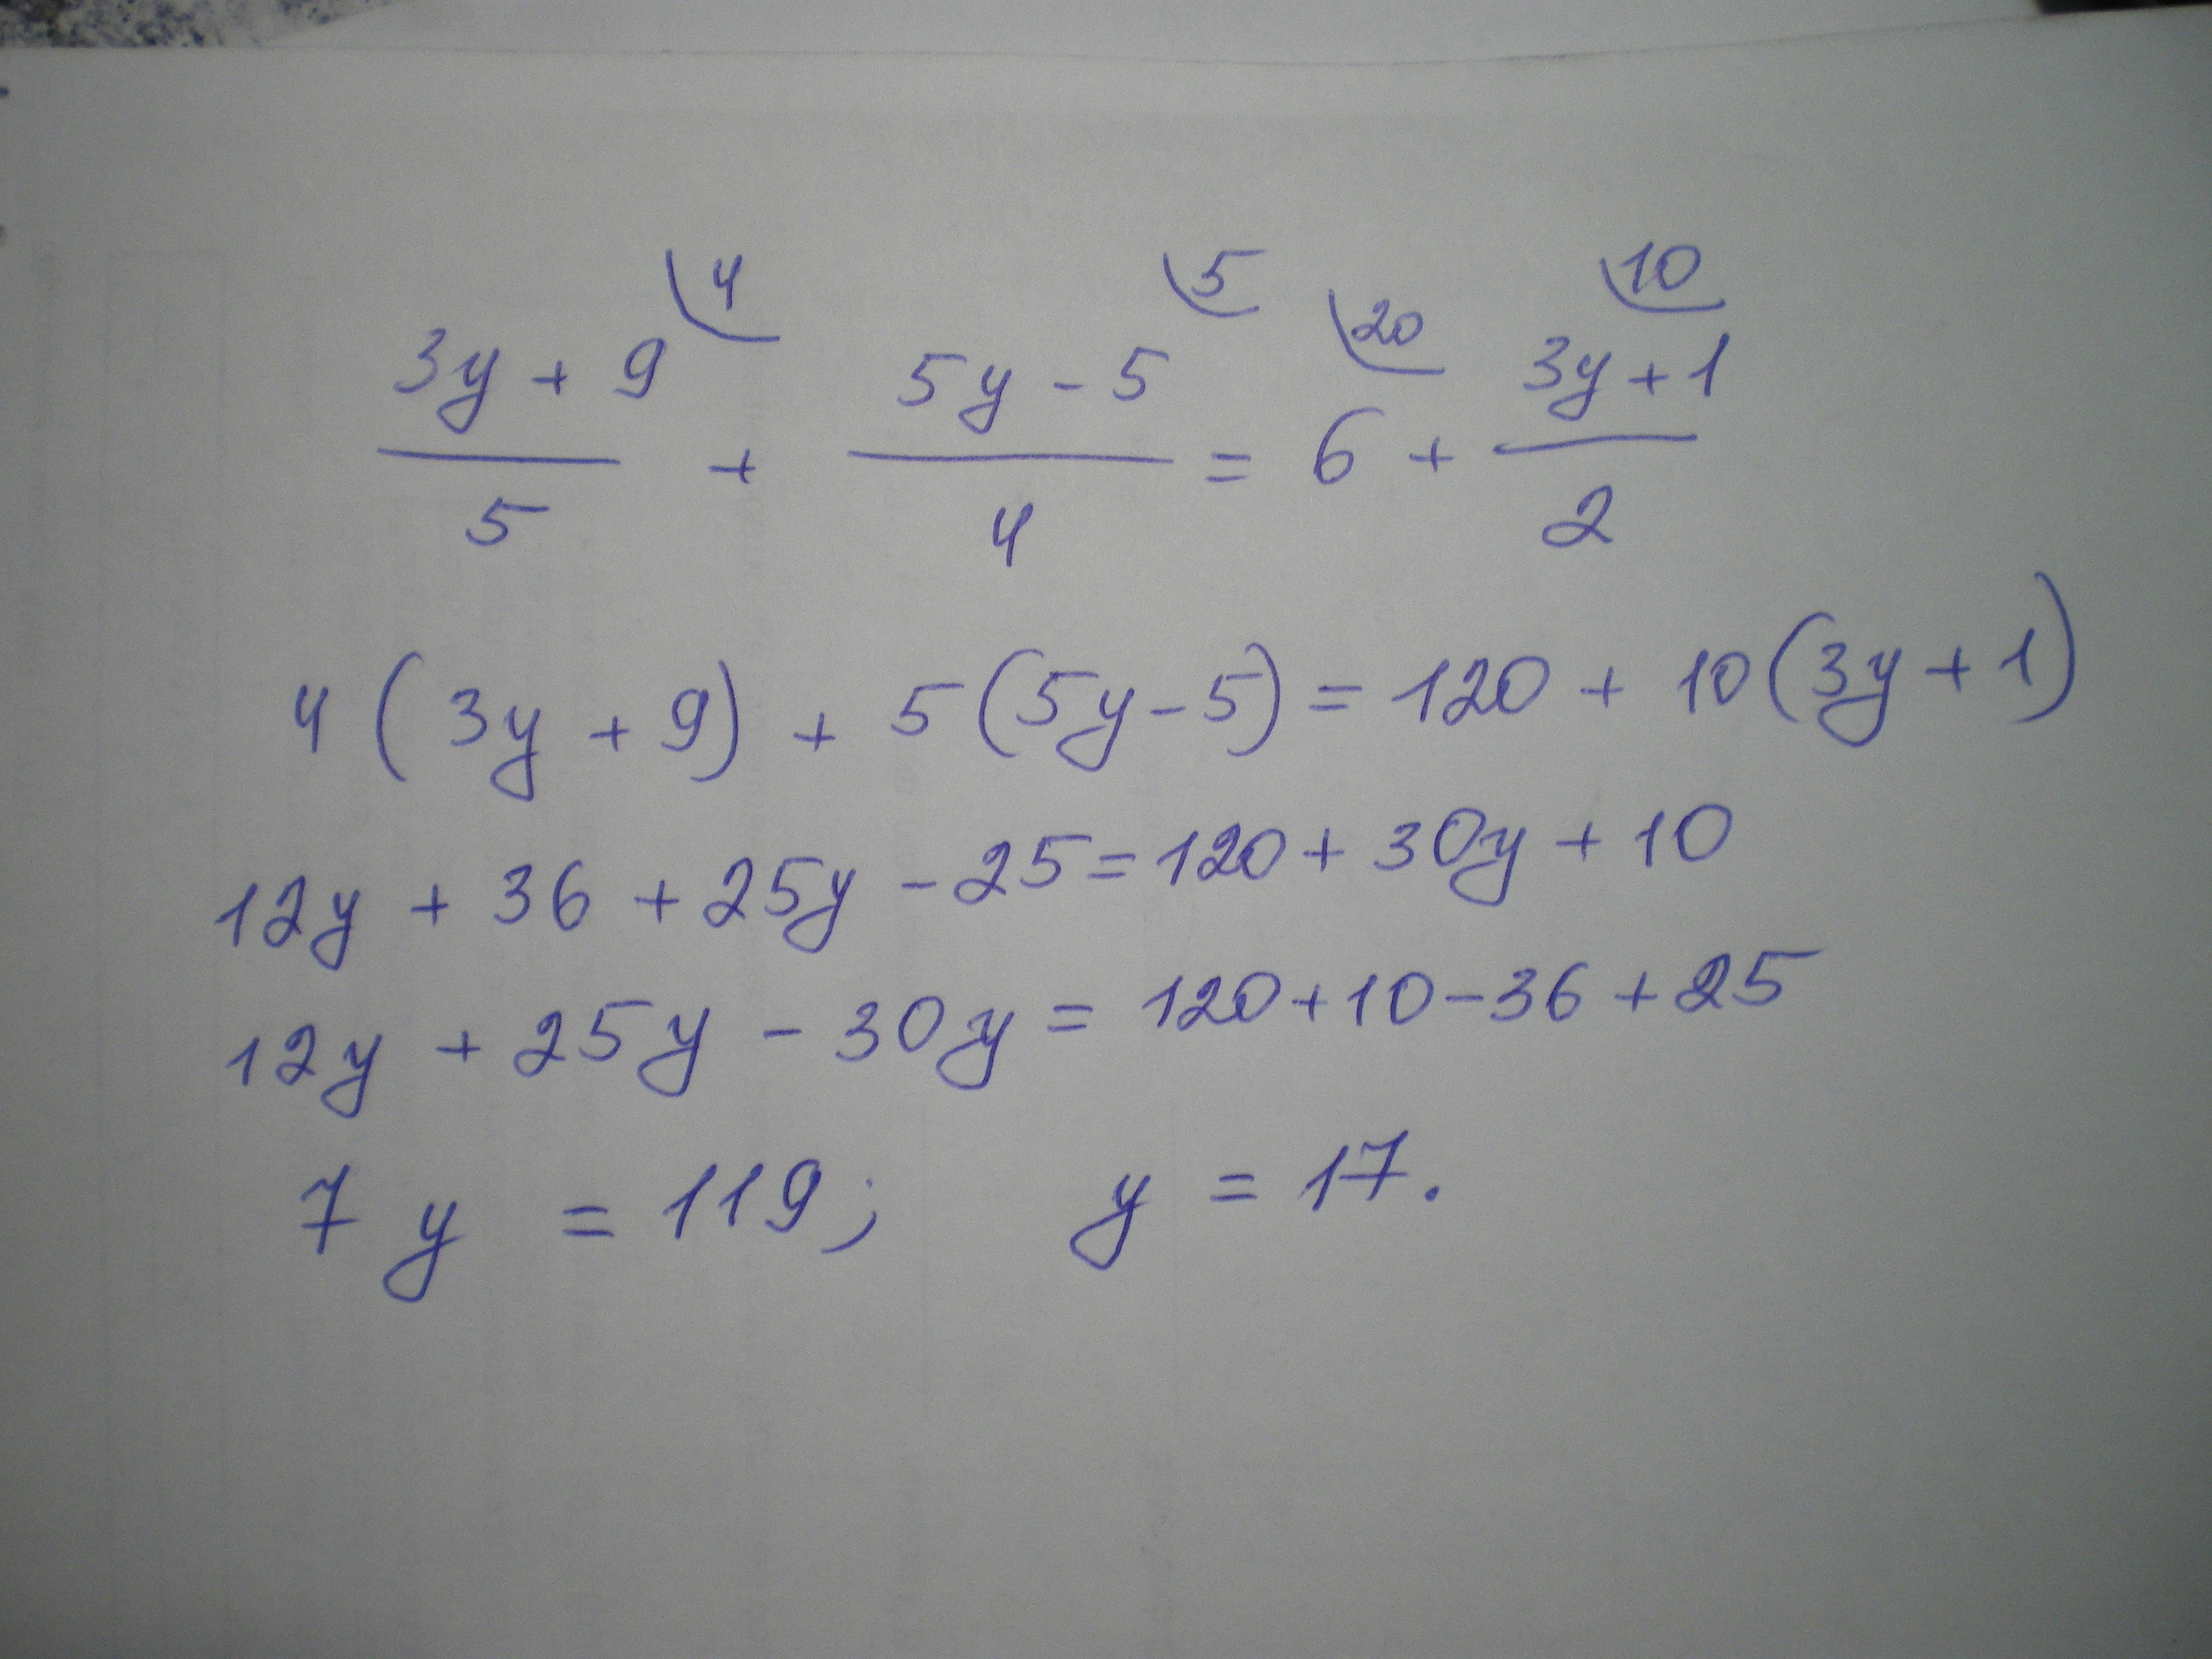 (3y + 9)/5 + (5y - 5)/4 = 6 + (3y + 1)/2
4 5 20 10
4 (3y + 9) + 5 (5y - 5) = 120 + 10 (3y + 1)
12y + 36 + 25y - 25 = 120 + 30y + 10
12y + 25y - 30y = 120 + 10 - 36 + 25
7 y = 119; y = 17.